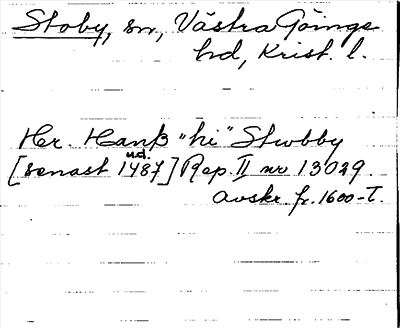 Stoby, sn, Västra Göinge
hd, Krist. l.
Her. Hanß "hi" Stwbby
u.d.
[senast 1487] Rep. II nr 13029.
Avskr. fr. 1600-T.